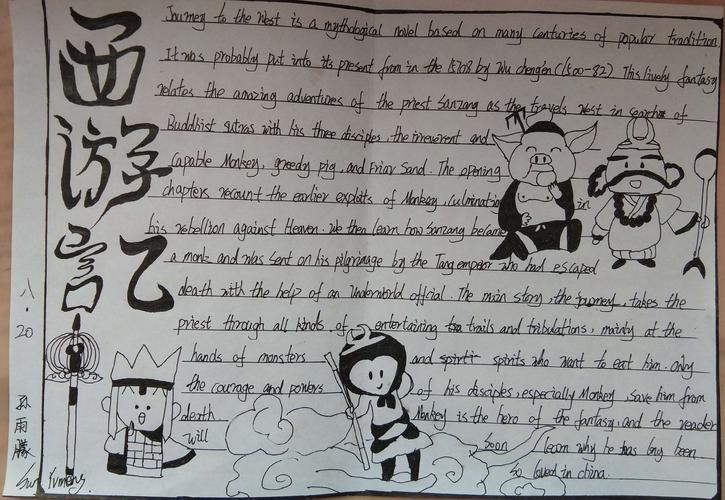 西游记
Journey to the West is a mythological novel based on many centuries of popular tradition
It was probably put into its present from in the 1570s by Wu chengen (1500-82). This lively fantasy
relates the amazing adventures of the priest Sanzang as the travels West in search of
Buddhist sutras with his three disciples, the irreverent and
capable Monkey, greedy pig, and Friar Sand. The opening
chapters recount the earlier exploits of Monkey, culminating in
his rebellion against Heaven. We then learn how Sanzang became
a monk and was sent on his pilgrimage by the Tang emperor who had escaped
death with the help of an underworld official. The main story, the journey, takes the
priest through all kinds of entertaining trails and tribulations, mainly at the
hands of monsters and spirits who want to eat him. Only
the courage and powers of his disciples, especially Monkey, save him from
death Monkey is the hero of the fantasy, and the reader
will soon learn why he has long been
so loved in china.
八·20
孙雨朦
Sun Yumeng.